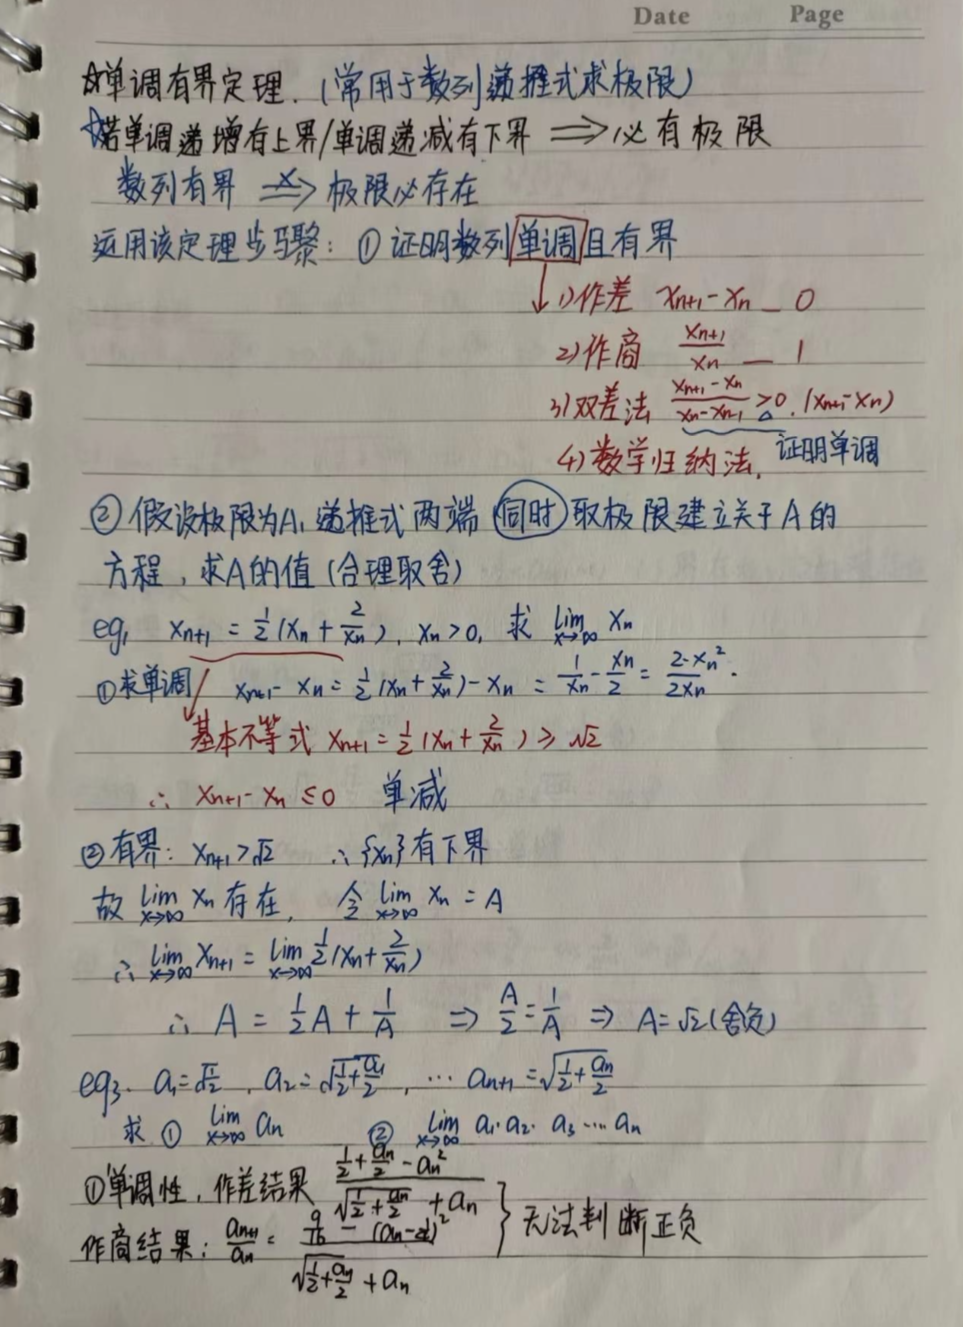 Date Page
☆单调有界定理.(常用于数列递推式求极限)
☆若单调递增有上界/单调递减有下界 ⟹必有极限
数列有界 ⇏ 极限必存在
运用该定理步骤: ① 证明数列单调且有界
↓ 1)作差 xₙ₊₁-xₙ _ 0
2)作商 xₙ₊₁/xₙ _ 1
3)双差法 (xₙ₊₁-xₙ)/(xₙ-xₙ₋₁) >0. (xₙ₊₁-xₙ)
4)数学归纳法. 证明单调
② 假设极限为A, 递推式两端 同时 取极限建立关于A的
方程, 求A的值(合理取舍)
eg₁ xₙ₊₁ = ½(xₙ + 2/xₙ). xₙ>0, 求 lim x→∞ xₙ
①求单调 xₙ₊₁-xₙ = ½(xₙ+2/xₙ)-xₙ = 1/xₙ - xₙ/2 = (2-xₙ²)/2xₙ.
基本不等式 xₙ₊₁ = ½(xₙ + 2/xₙ) ≥ √2
∴ xₙ₊₁-xₙ ≤0 单减
②有界: xₙ₊₁>√2 ∴{xₙ}有下界
故 lim x→∞ xₙ 存在, 令 lim x→∞ xₙ = A
∴ lim x→∞ xₙ₊₁ = lim x→∞ ½(xₙ+2/xₙ)
∴ A = ½A + 1/A ⇒ A/2 = 1/A ⇒ A=√2(舍负)
eg₃. a₁=√½, a₂=√(½+a₁/2), … aₙ₊₁=√(½+aₙ/2)
求 ① lim x→∞ aₙ ② lim x→∞ a₁·a₂·a₃…aₙ
①单调性, 作差结果 (½+aₙ/2-aₙ²)/(√(½+aₙ/2)+aₙ) } 无法判断正负
作商结果: aₙ₊₁/aₙ = (9/16-(aₙ-¼)²)/(√(½+aₙ/2)+aₙ)